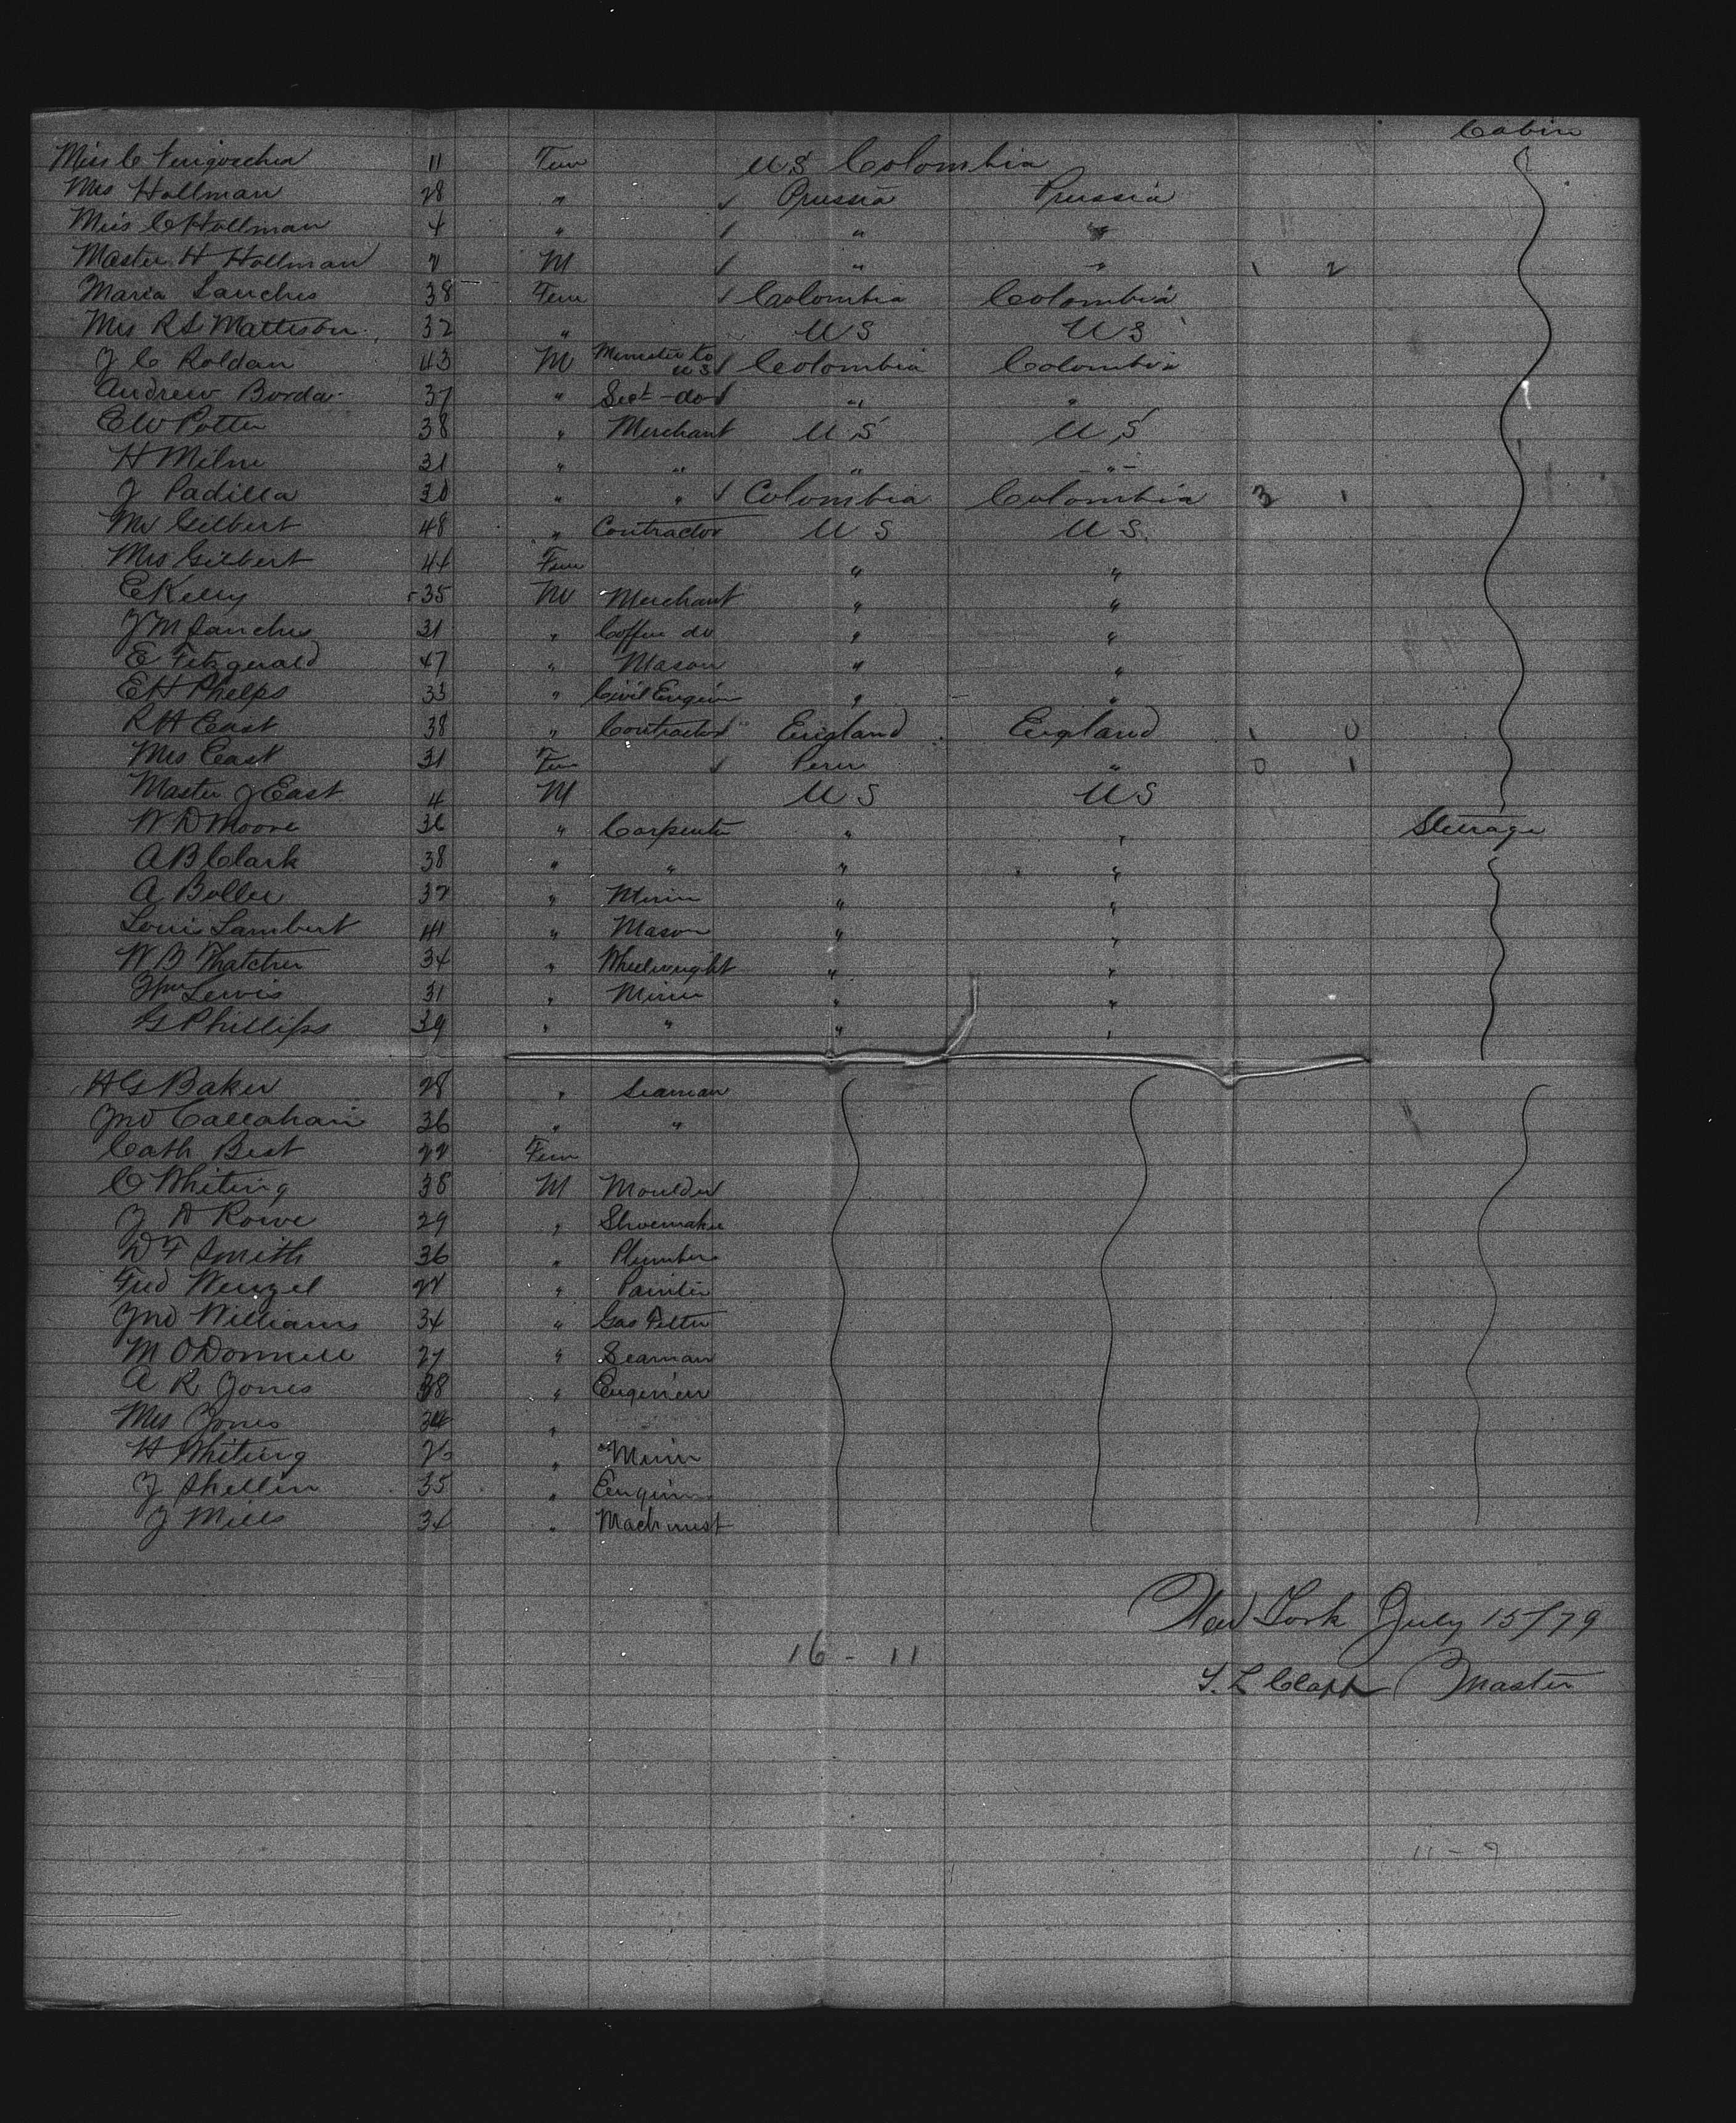 Cabin
Miss C 11 Fem U S Colombia
Mrs Hollman 28 " ✓ Prussia Prussia
Miss C Hollman 4 " ✓ " "
Master H Hollman 2 M ✓ " " 1 2
Maria Sanches 38 Fem ✓ Colombia Colombia
Mrs R S Mattison 32 " U S U S
J C Roldan 43 M Minister to U S ✓ Colombia Colombia
Andrew Borda 37 " Sect - do ✓ " "
E W Potter 38 " Merchant U S U S
H Milne 31 " " " "
J Padilla 30 " " ✓ Colombia Colombia 3 1
Mr Gilbert 48 " Contractor U S U S
Mrs Gilbert 44 Fem " "
E Kelly 35 M Merchant " "
J M Sanches 31 " Coffee do " "
E Fitzgerald 47 " Mason " "
E H Phelps 33 " Civil Engin " "
R H East 38 " Contractor England England 1 0
Mrs East 31 Fem ✓ Peru " 0 1
Master J East 4 M U S U S
W D Moore 36 " Carpenter " " Steerage
A B Clark 38 " " " "
A Boller 32 " Miner " "
Louis Lambert 41 " Mason " "
W B Thatcher 34 " Wheelwright " "
Wm Lewis 31 " Miner " "
G Phillips 39 " " " "
H G Baker 28 " Seaman
Jno Callahan 36 " "
Cath Best 22 Fem
C Whiting 38 M Moulder
J A Rowe 29 " Shoemaker
D F Smith 36 " Plumber
Fred Wenzel 24 " Painter
Jno Williams 34 " Gas Fitter
M O'Donnell 27 " Seaman
A R Jones 38 " Engineer
Mrs Jones 34 "
H Whiting " Miner
J Shellin 35 " Engin
J Mills 34 " Machinist
New York July 15/79
16 - 11
S. L Clapp Master
11 - 9